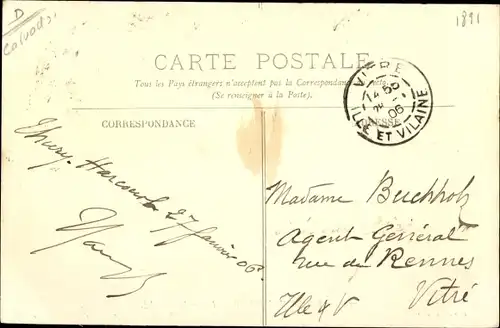 D
Calvados
1891
CARTE POSTALE
Tous les Pays étrangers n'acceptent pas la Correspondance
(Se renseigner à la Poste).
VITRÉ
14 50
06
ILLE ET VILAINE
CORRESPONDANCE
Thury-Harcourt 27 Janvier 06
Madame Buchholz
Agent Général
rue de Rennes
Vitré
Ille & V